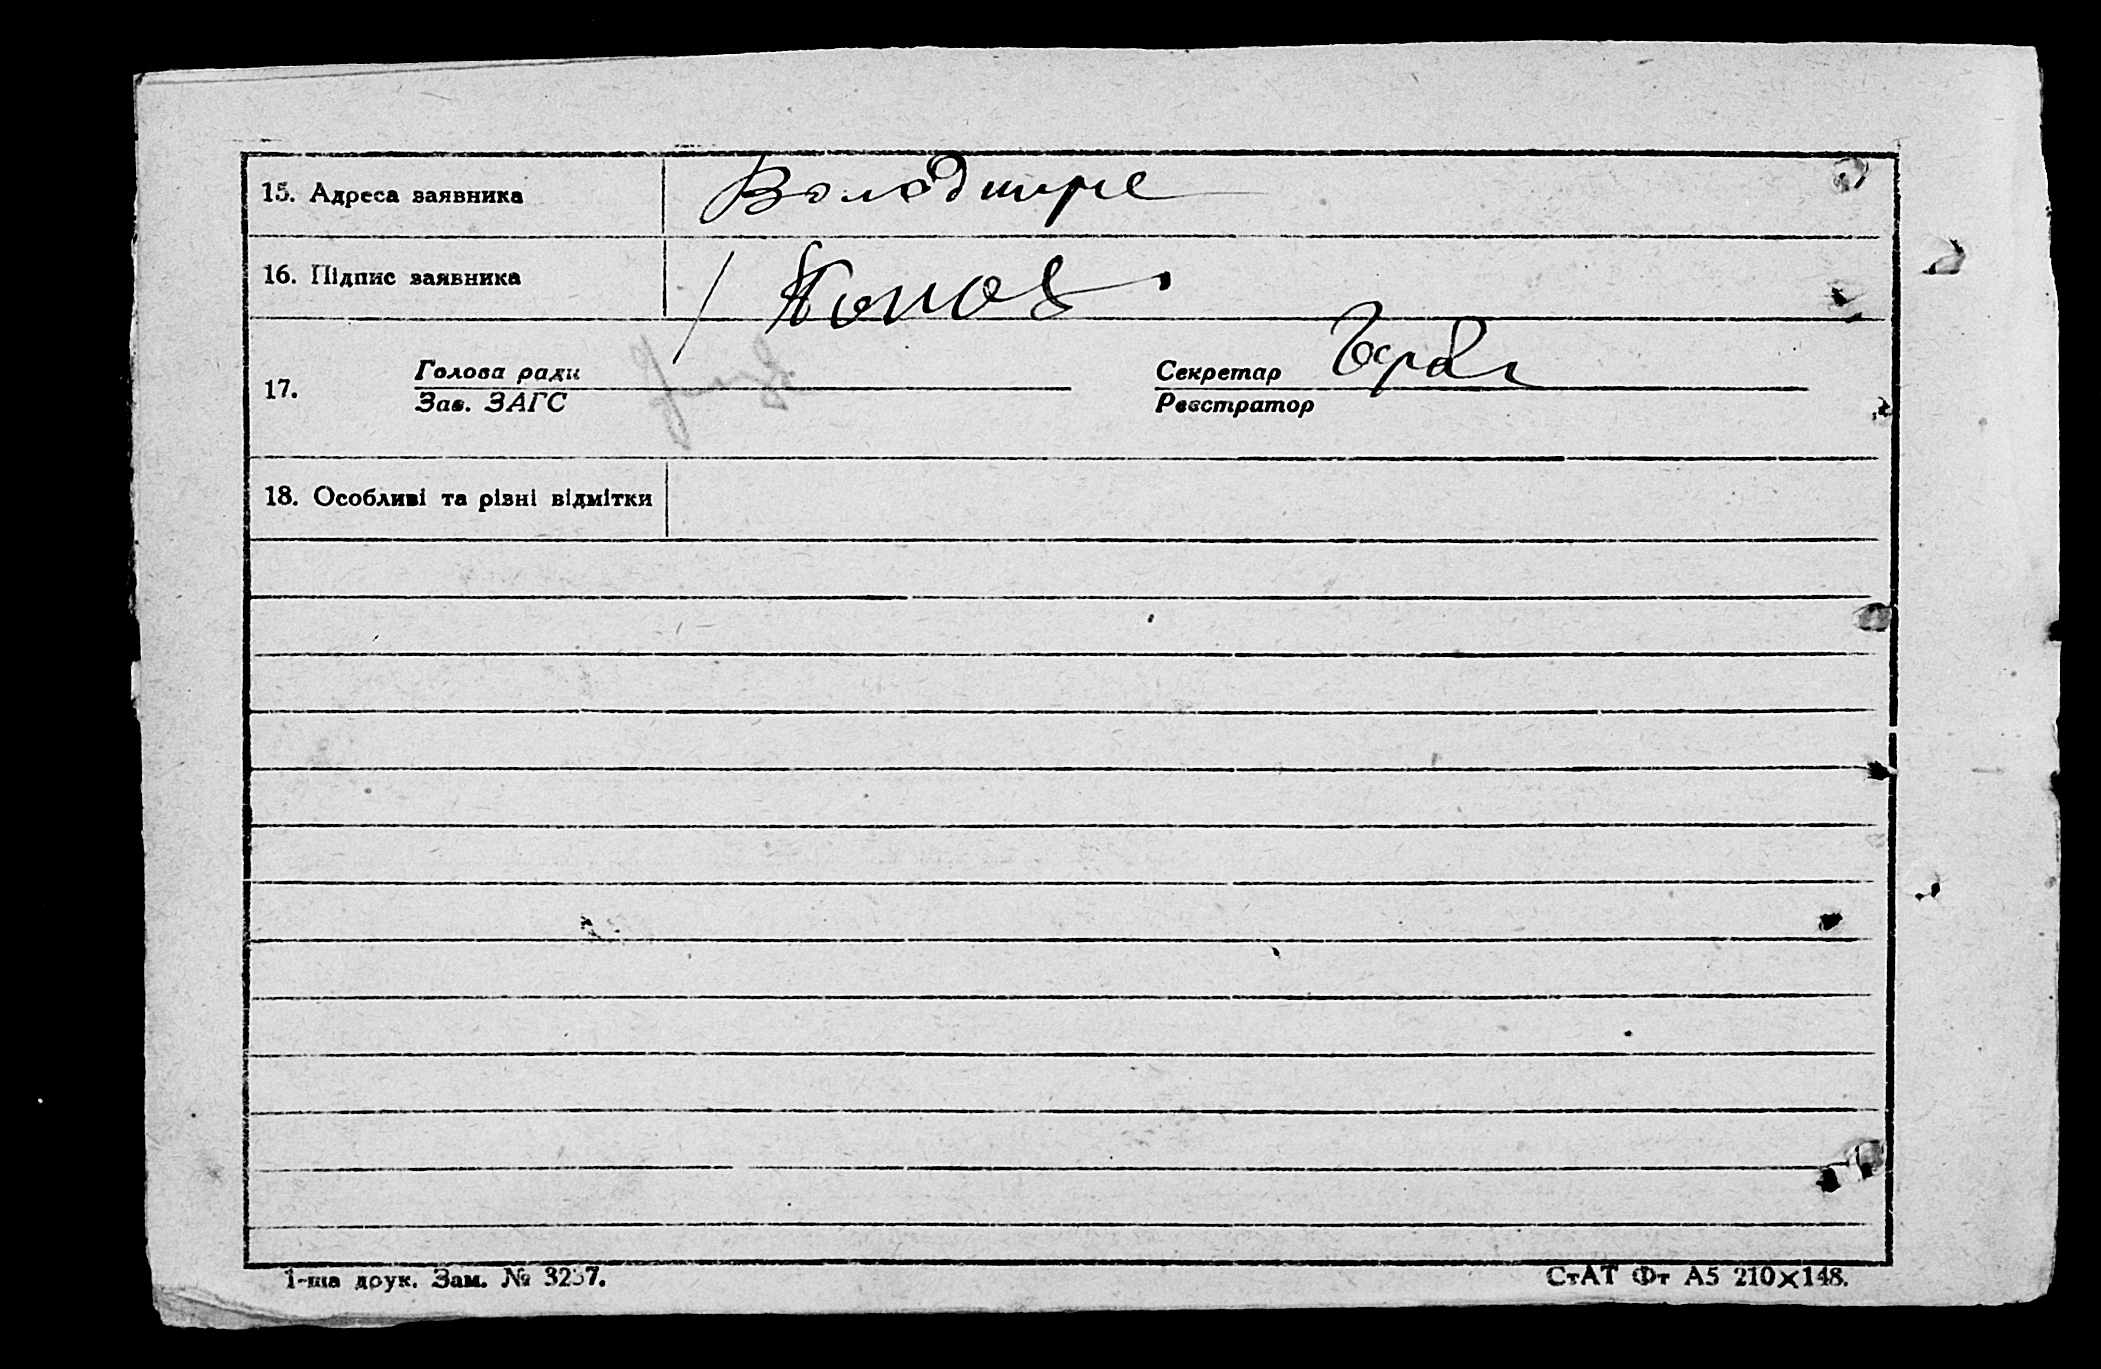 15. Адреса заявника
16. Підпис заявника Попов
17. Голова ради
Зав. ЗАГС
Секретар
Реєстратор
18. Особливі та різні відмітки
1-ша друк. Зам. № 3257.
СтАТ Фт А5 210×148.